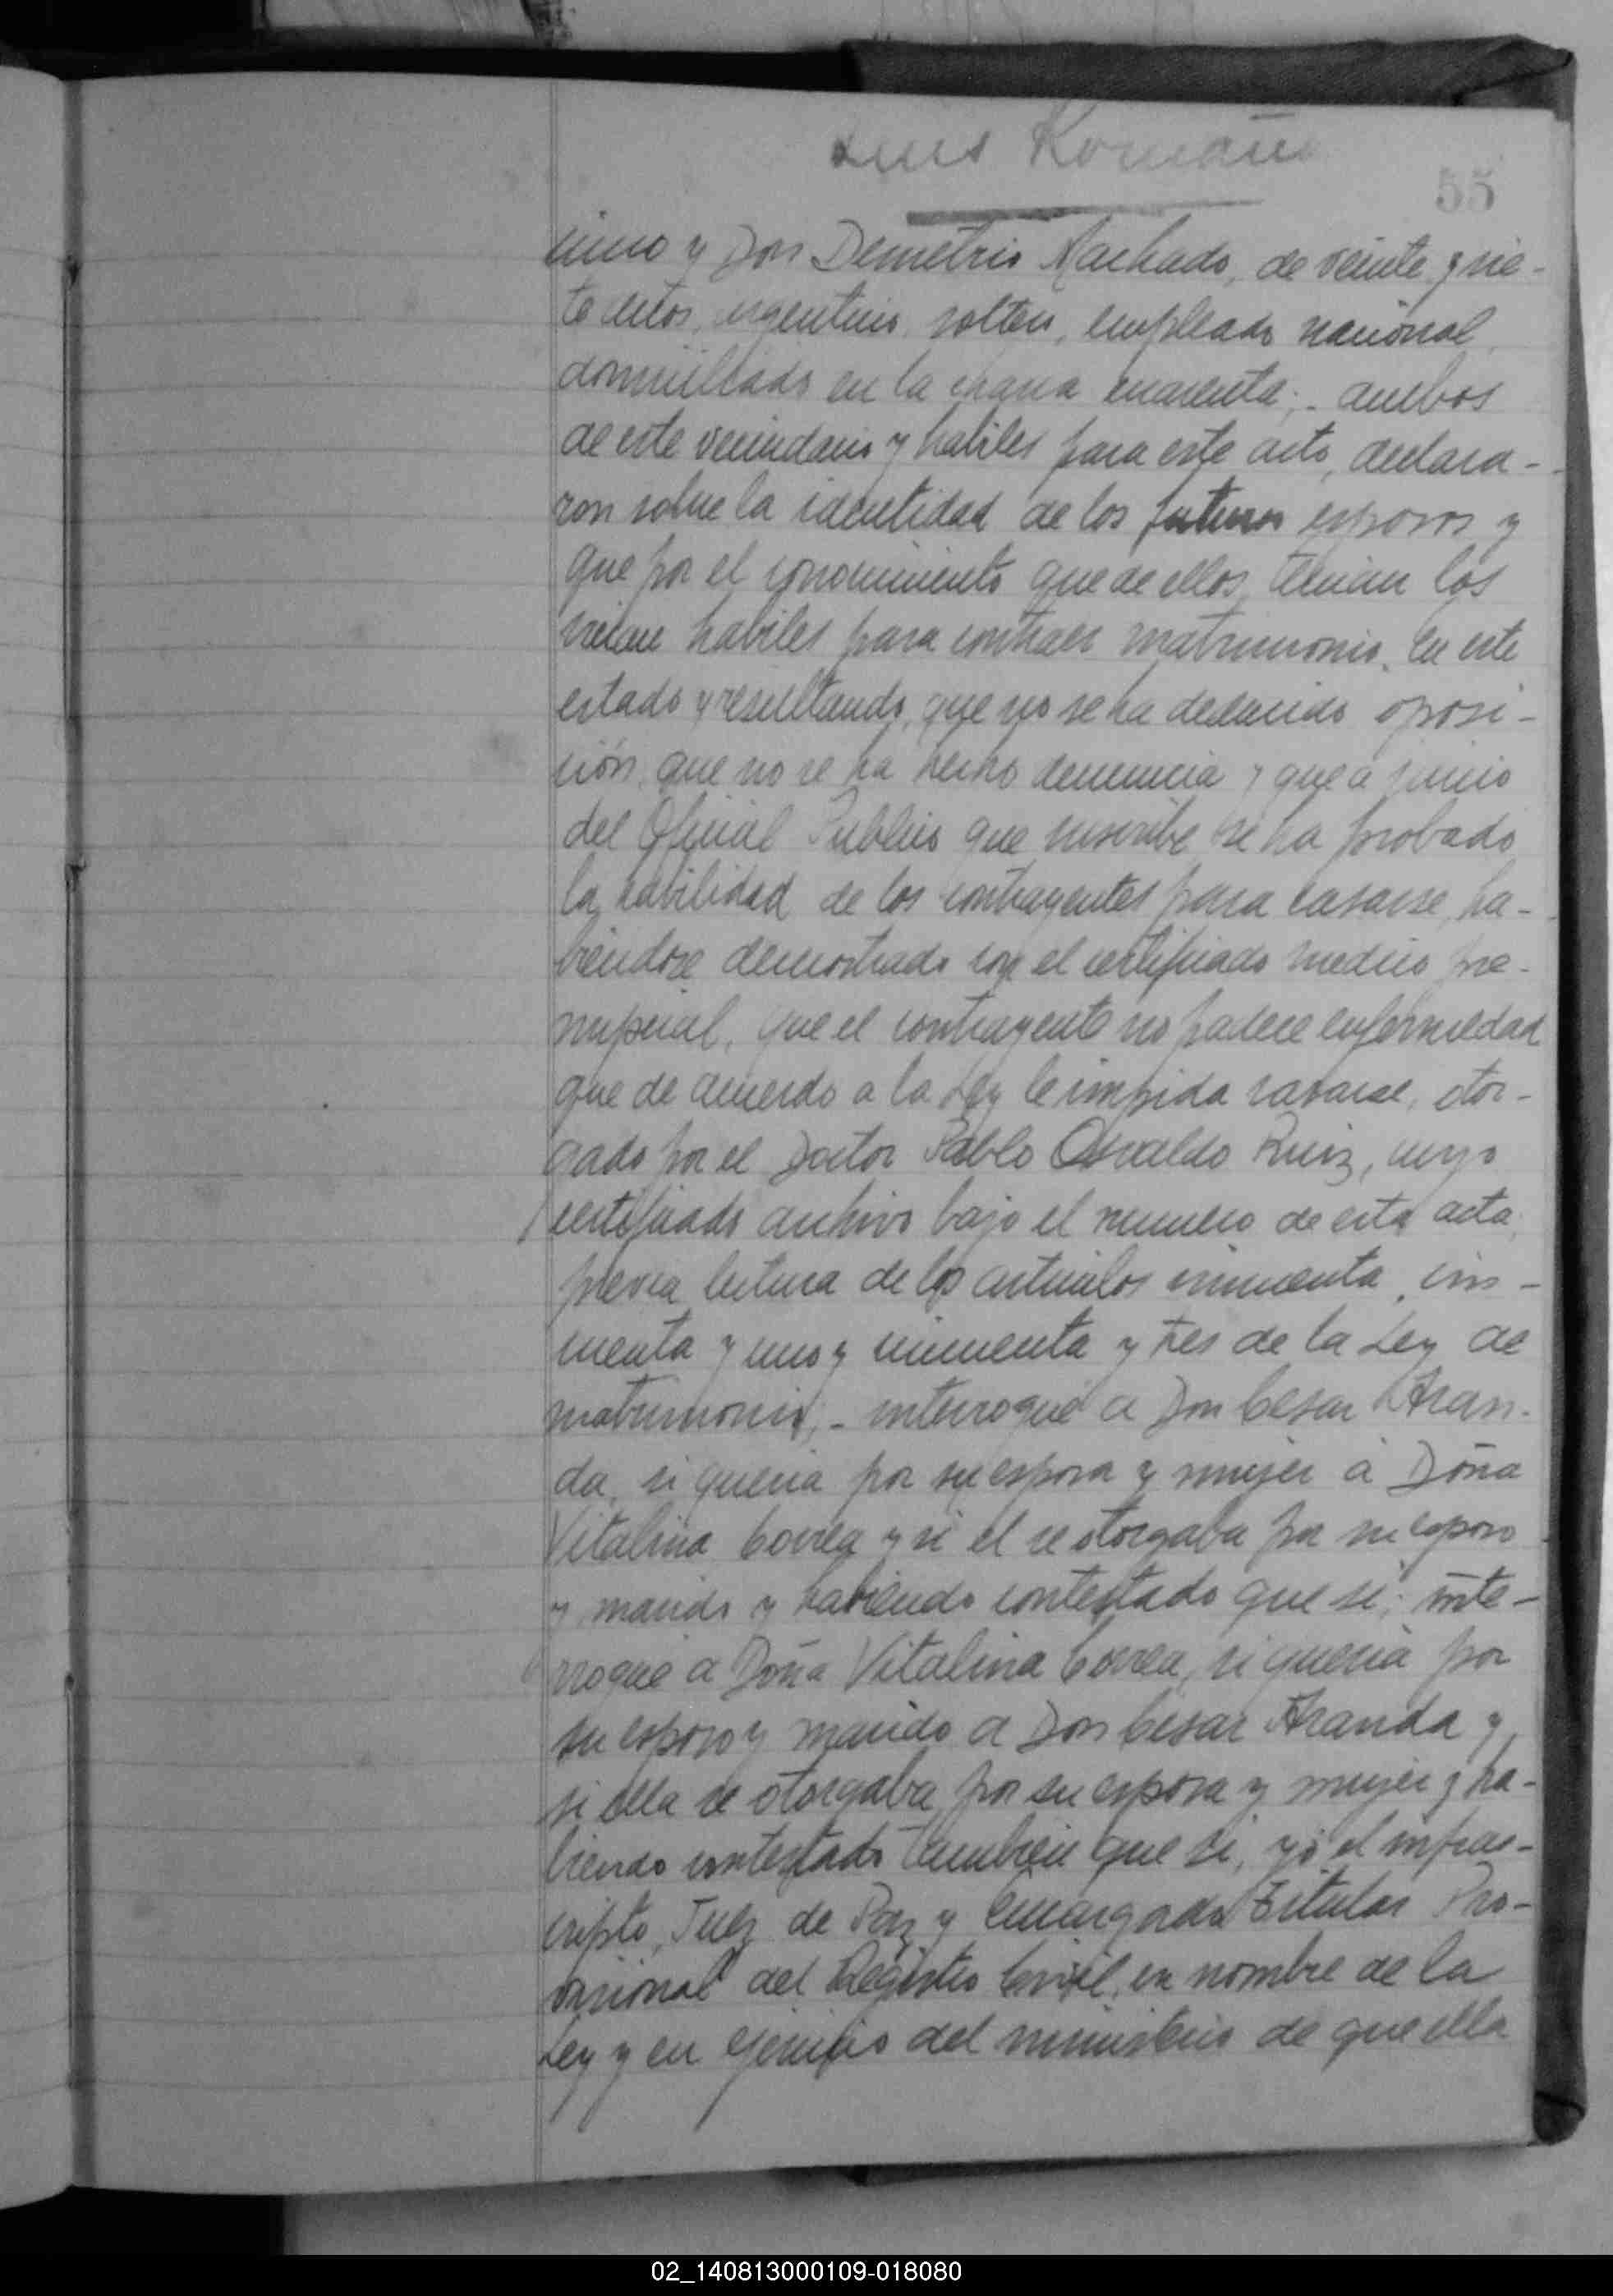 Luis Romaño
55
cinco y Don Demetrio Machado, de veinte y sie-
te años, argentino, soltero, empleado nacional,
domiciliado en la chara cuarenta; - ambos
de este vecindario y habiles para este acto, declara-
ron sobre la identidad de los futuros esposos y
que por el conocimiento que de ellos tenian los
creian habiles para contraer matrimonio. En este
estado y resultando, que no se ha deducido oposi-
ción, que no se ha hecho denuncia y que a juicio
del Oficial Publico que suscribe se ha probado
la habilidad de los contrayentes para casarse, ha-
biendose demostrado con el certificado medico pre-
nupcial, que el contrayente no padece enfermedad
que de acuerdo a la Ley le impida casarse, otor-
gado por el Doctor Pablo Osvaldo Ruiz, cuyo
certificado archivo bajo el numero de esta acta,
previa lectura de los articulos cincuenta, cin-
cuenta y uno y cincuenta y tres de la Ley de
matrimonio, - interrogué a Don Cesar Aran-
da, si queria por su esposa y mujer a Doña
Vitalina Correa y si el se otorgaba por su esposo
y marido y habiendo contestado que si; inte-
rrogué a Doña Vitalina Correa, si queria por
su esposo y marido a Don Cesar Aranda y
si ella se otorgaba por su esposa y mujer y ha-
biendo contestado tambien que si, yo el infras-
cripto, Juez de Paz y Encargado Titular Pro-
visional del Registro Civil, en nombre de la
Ley y en ejercicio del ministerio de que ella
02_140813000109-018080